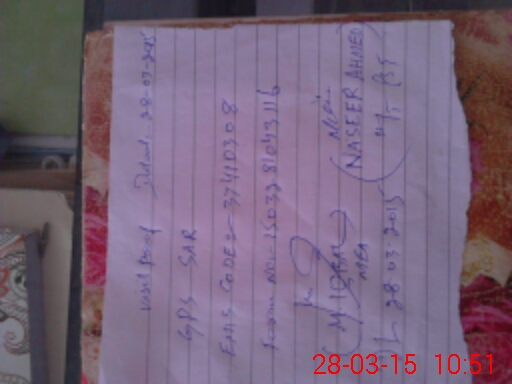 visit proof Dated: 28-03-2015
GPS SAR
EMIS CODE:- 37410308
Form No:- 15033781043116
(M IQBAL) (NASEER AHMED)
MEA
28.03.2015
28-03-15 10:51